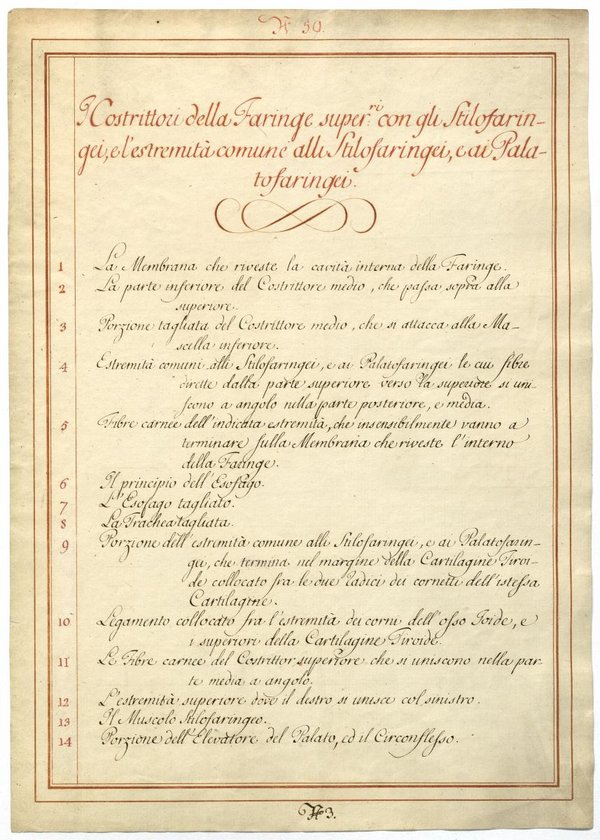 N. 50.
I Costrittori della Faringe super.ri con gli Stilofarin-
gei, e l'estremità comune alli Stilofaringei, e ai Pala-
tofaringei.
1 La Membrana che riveste la cavità interna della Faringe.
2 La parte inferiore del Costrittore medio, che passa sopra alla
superiore.
3 Porzione tagliata del Costrittore medio, che si attacca alla Ma-
scella inferiore.
4 Estremità comuni alli Stilofaringei, e ai Palatofaringei le cui fibre
dirette dalla parte superiore verso la superiore si uni-
scono a angolo nella parte posteriore, e media.
5 Fibre carnee dell'indicata estremità, che insensibilmente vanno a
terminare sulla Membrana che riveste l'interno
della Faringe.
6 Il principio dell'Esofago.
7 L'Esofago tagliato.
8 La Trachea tagliata.
9 Porzione dell'estremità comune alli Stilofaringei, e ai Palatofarin-
gei, che termina nel margine della Cartilagine Tiroi-
de collocato fra le due radici dei cornetti dell'istessa
Cartilagine.
10 Legamento collocato fra l'estremità dei corni dell'osso Joide, e
i superiori della Cartilagine Tiroide.
11 Le Fibre carnee del Costrittor superiore che si uniscono nella par-
te media a angolo.
12 L'estremità superiore dove il destro si unisce col sinistro.
13 Il Muscolo Stilofaringeo.
14 Porzione dell'Elevatore del Palato, ed il Circonflesso.